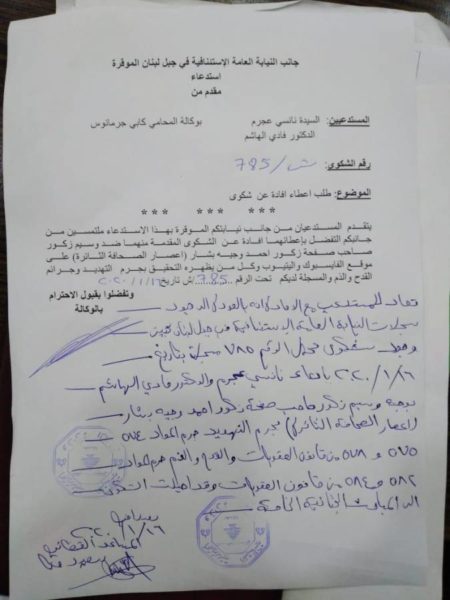 جانب النيابة العامة الإستئنافية في جبل لبنان الموقرة
استدعاء
مقدم من
المستدعيين: السيدة نانسي عجرم بوكالة المحامي كابي جرمانوس
الدكتور فادي الهاشم
رقم الشكوى: 785/ش
الموضوع: طلب اعطاء افادة عن شكوى
*** *** ***
يتقدم المستدعيان من جانب نيابتكم الموقرة بهذا الاستدعاء ملتمسين من
جانبكم التفضل بإعطائهما افادة عن الشكوى المقدمة منهما ضد وسيم زكور
صاحب صفحة زكور احمد وجيه بشار (اعصار الصحافة الثائرة) على
موقع الفايسبوك واليتيوب وكل من يظهره التحقيق بجرم التهديد وجرائم
القدح والذم والمسجلة لديكم تحت الرقم 785/ش تاريخ
وتفضلوا بقبول الاحترام
بالوكالة
تفاد المستدعي انه بالعودة الى
سجلات النيابة العامة الاستئنافية في جبل لبنان تبين
وجود شكوى تحمل الرقم ٧٨٥ مسجلة بتاريخ
١٦/١/٢٠٢٠ بادعاء نانسي عجرم والدكتور فادي الهاشم
بوجه وسيم زكور صاحب صفحة زكور احمد وجيه بشار
(اعصار الصحافة الثائرة) بجرم التهديد جرم المواد ٥٧٤
٥٧٥ و ٥٧٨ من قانون العقوبات والقدح والذم جرم المواد
٥٨٢ و ٥٨٤ من قانون العقوبات وقد احيلت الشكوى
الى المباحث الجنائية الخاصة
بعبدا في
١٦/١